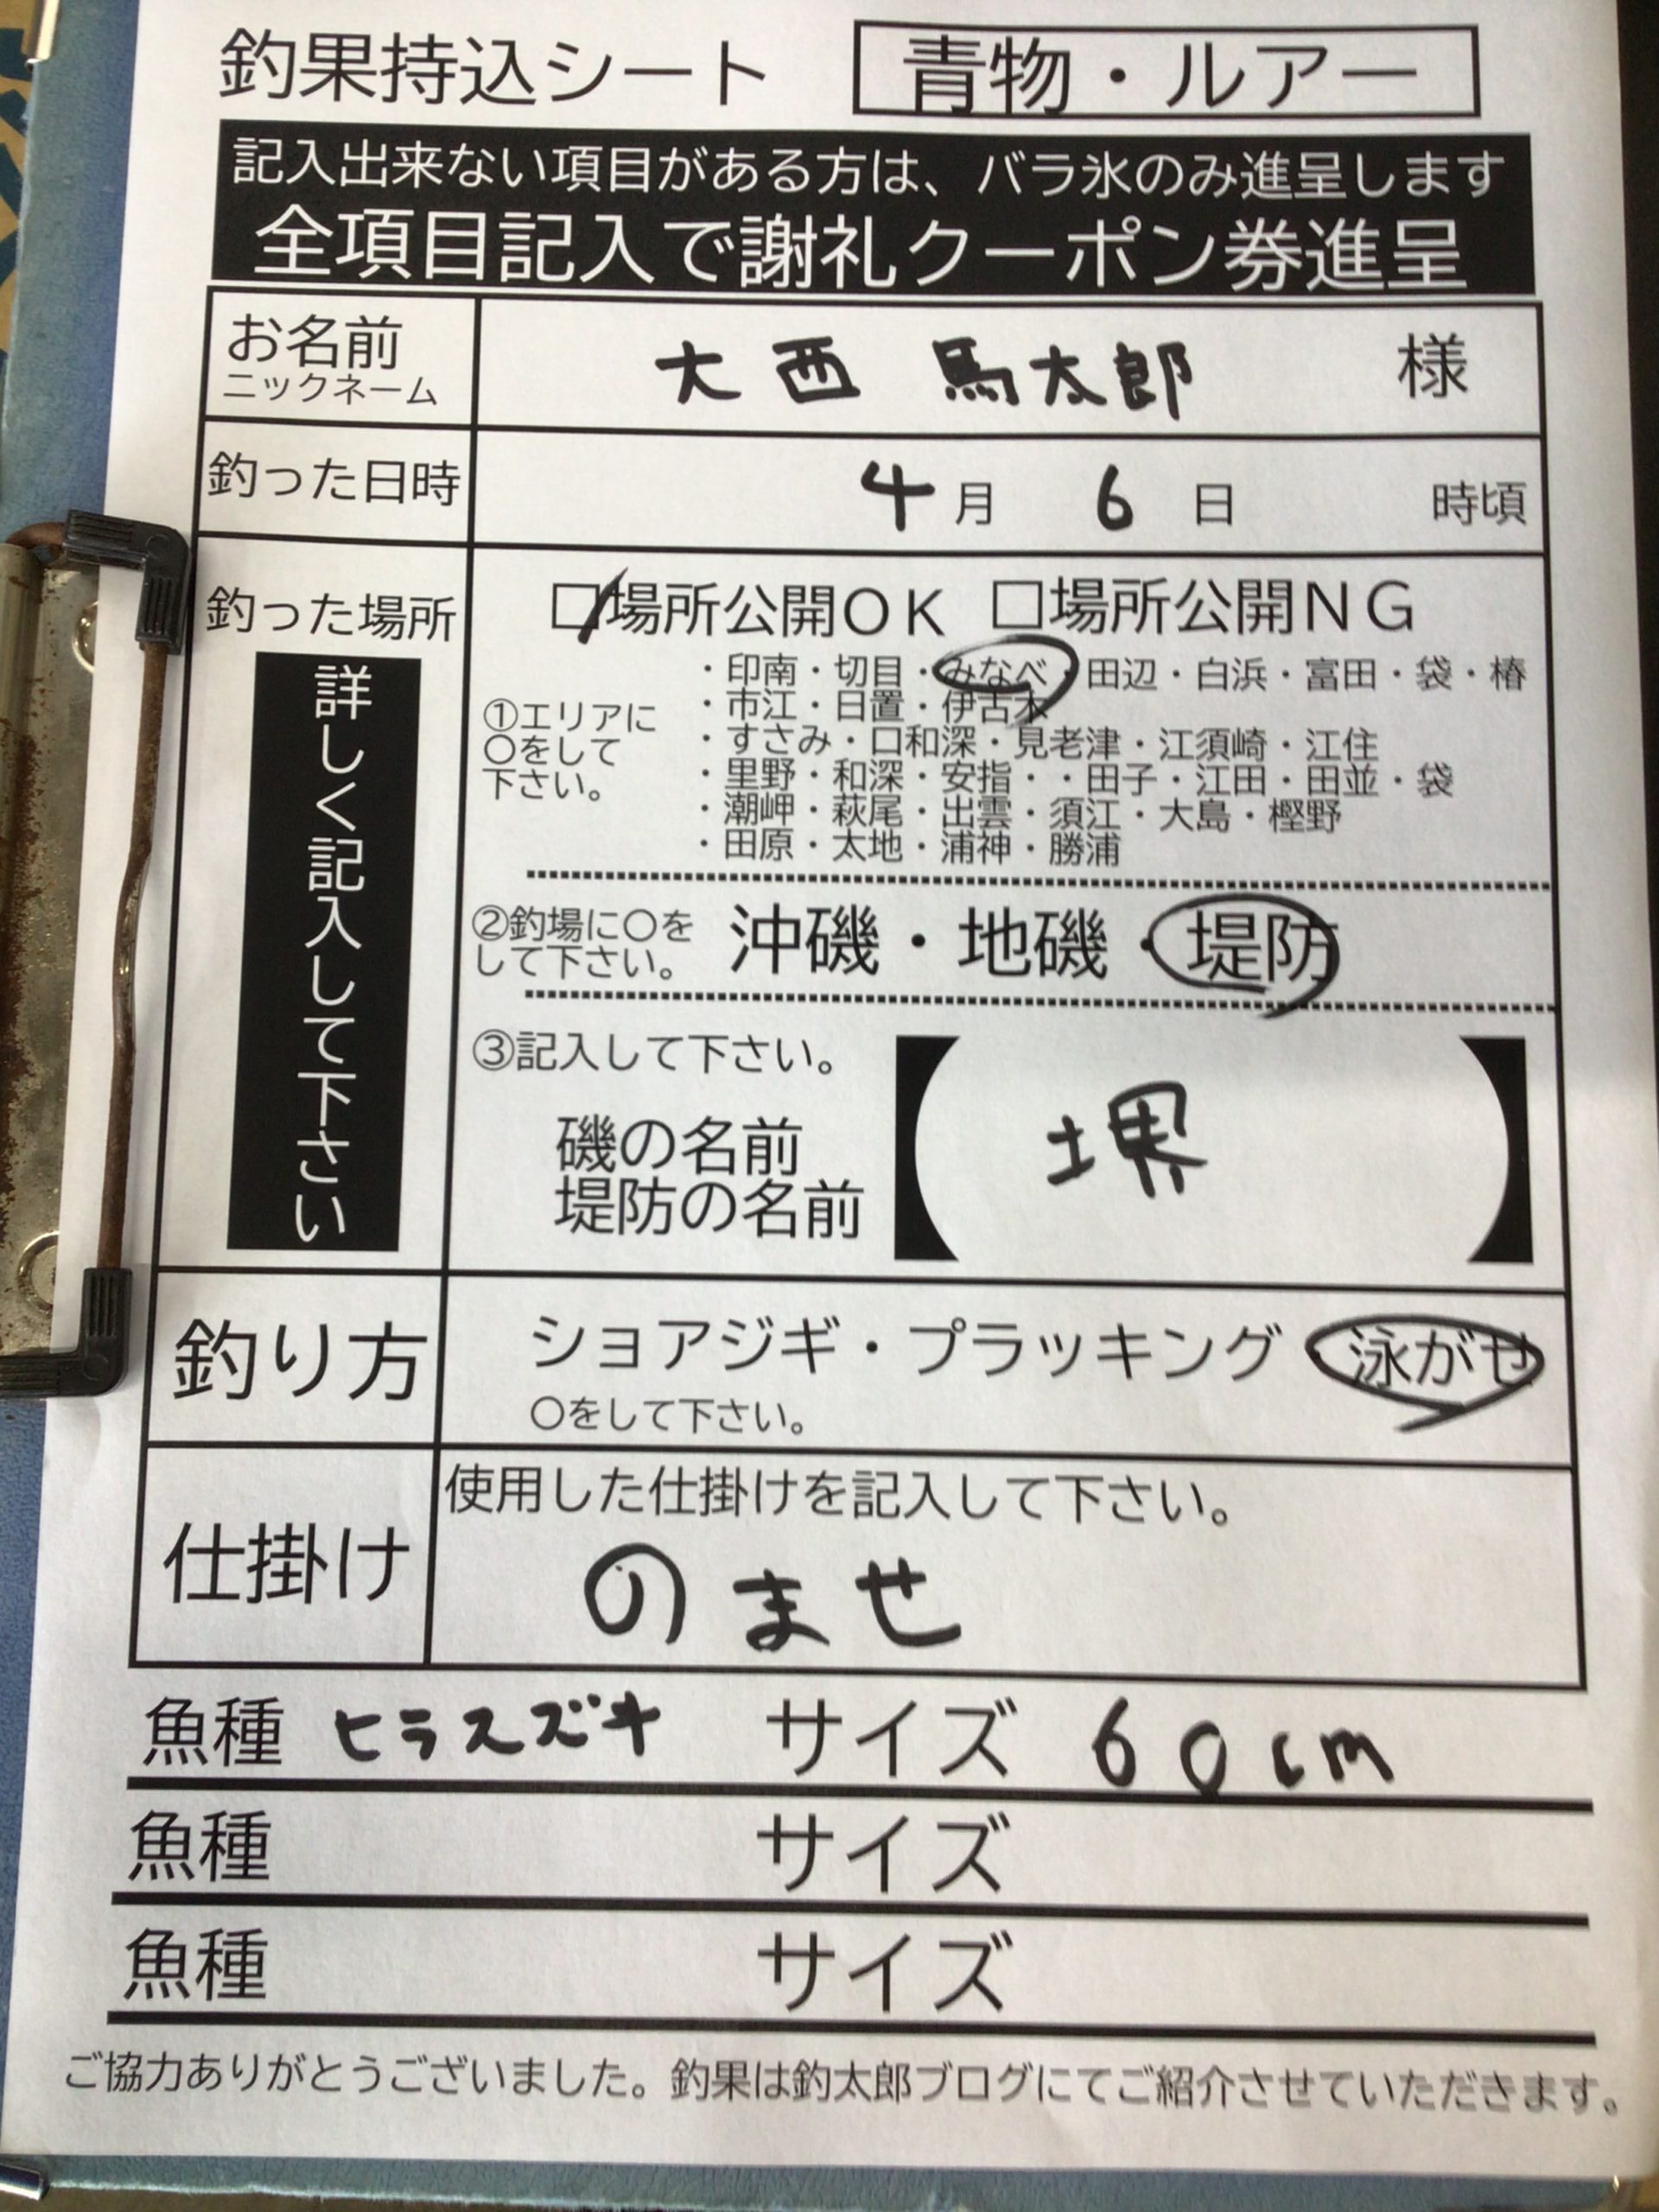 釣果持込シート 青物・ルアー
記入出来ない項目がある方は、バラ氷のみ進呈します
全項目記入で謝礼クーポン券進呈
お名前 大西 馬太郎 様
ニックネーム
釣った日時 4月 6日 時頃
釣った場所 □場所公開OK □場所公開NG
詳しく記入して下さい
①エリアに
〇をして
下さい。
・印南・切目・みなべ・田辺・白浜・富田・袋・椿
・市江・日置・伊古木
・すさみ・口和深・見老津・江須崎・江住
・里野・和深・安指・・田子・江田・田並・袋
・潮岬・萩尾・出雲・須江・大島・樫野
・田原・太地・浦神・勝浦
②釣場に〇を
して下さい。
沖磯・地磯・堤防
③記入して下さい。
磯の名前
堤防の名前
【 堺 】
釣り方 ショアジギ・プラッキング 泳がせ
〇をして下さい。
仕掛け 使用した仕掛けを記入して下さい。
のませ
魚種 ヒラスズキ サイズ 60cm
魚種 サイズ
魚種 サイズ
ご協力ありがとうございました。釣果は釣太郎ブログにてご紹介させていただきます。